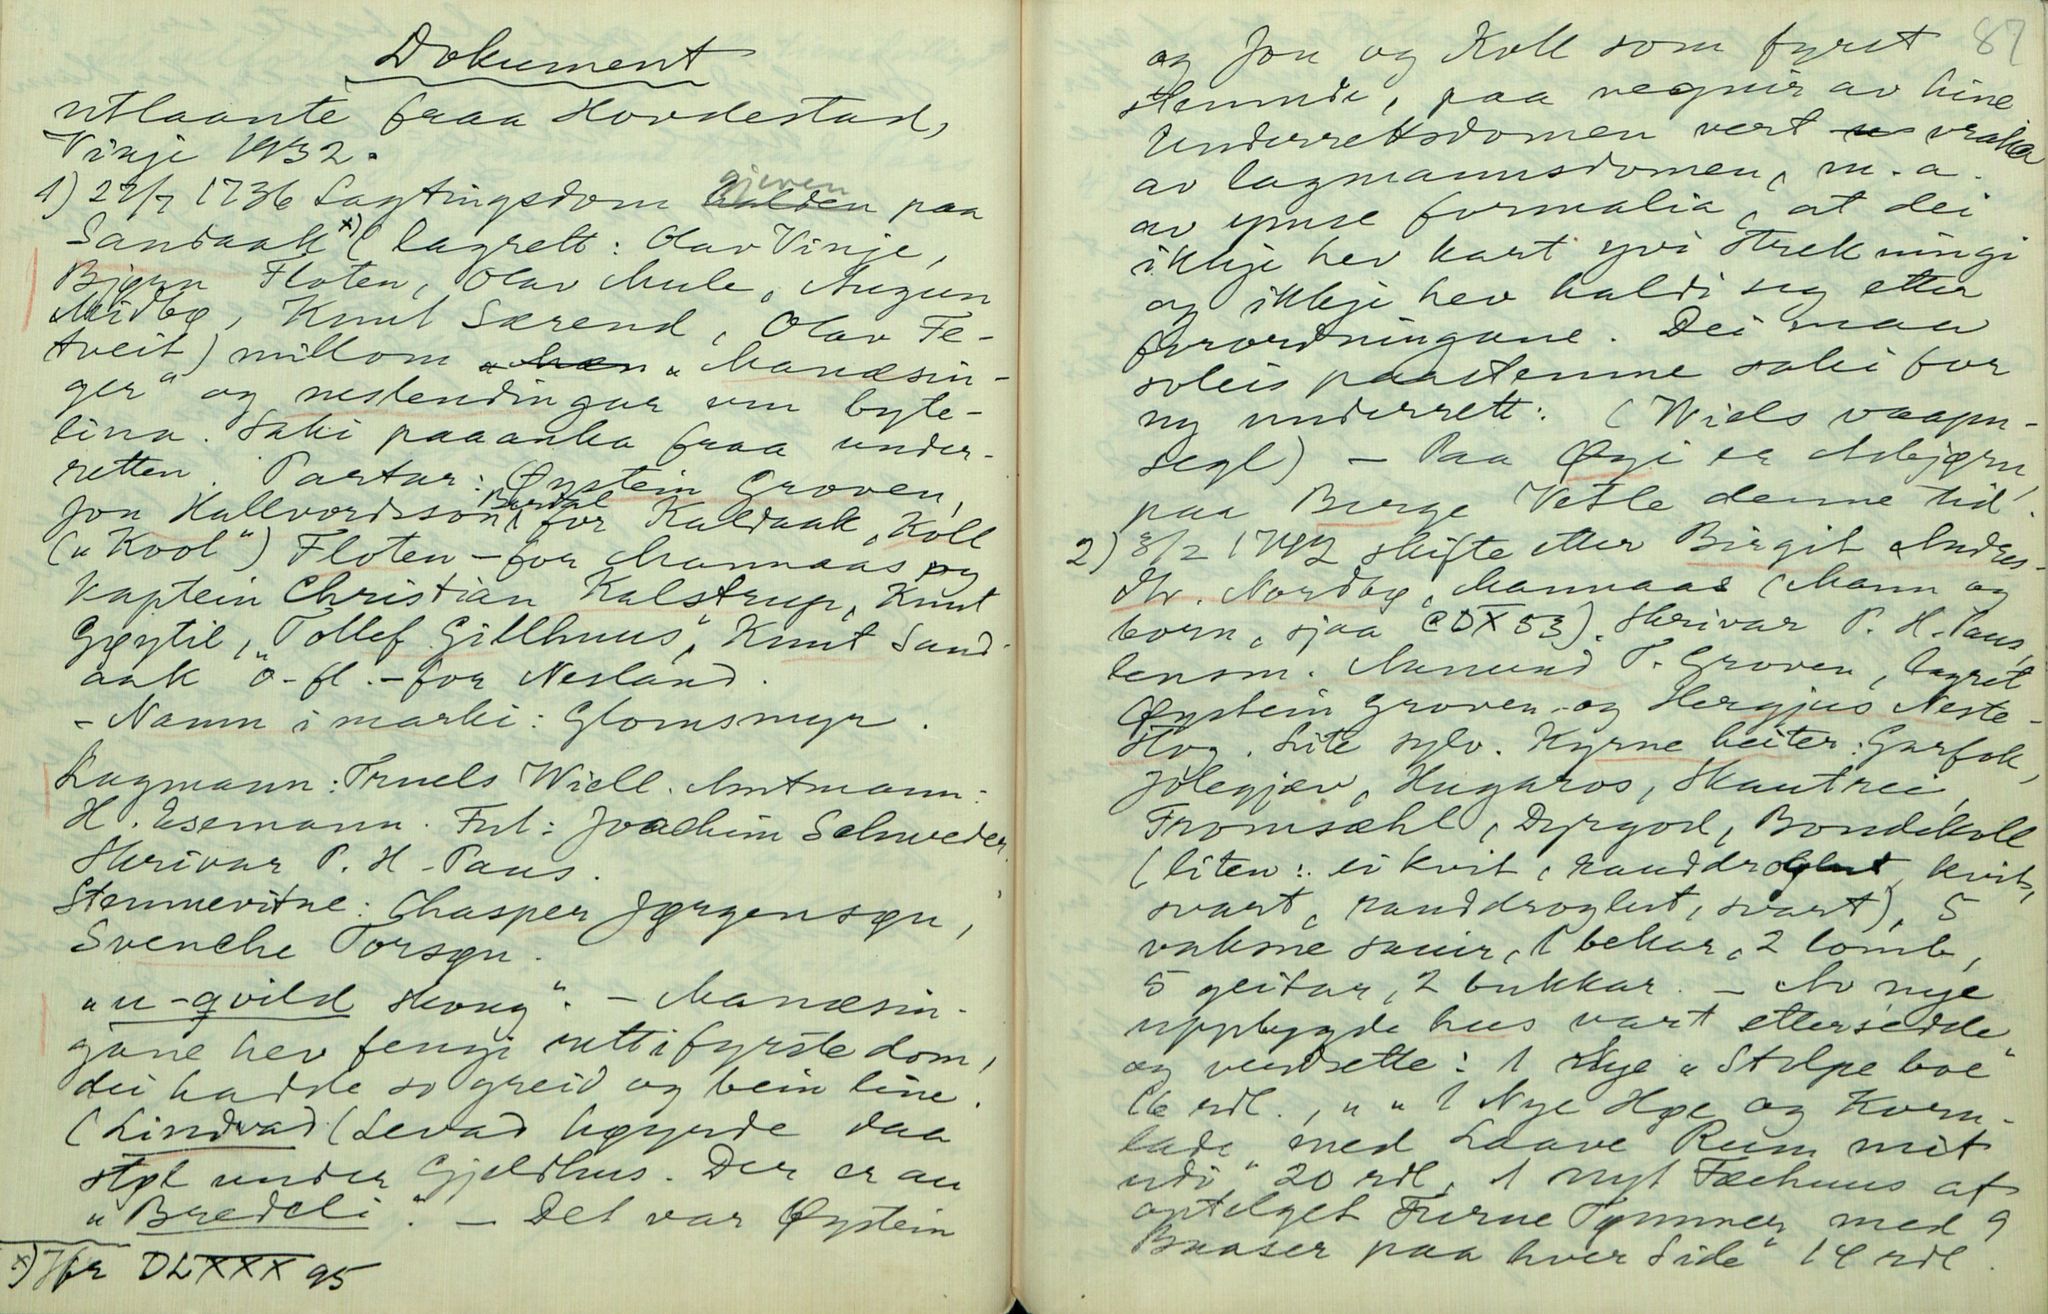 Dokument
utlaante fraa Hovdestad,
Vinje 1932.
1) 27/7 1736 Lagtingsdom halden gjeven paa
Sandaak x) (lagrett: Olav Vinje,
Bjørn Floten, Olav Mule, Augun
Midbø, Knut Særend, Olav Fe-
tveit) millom „Manæsin-
ger" og neslendingar um byte-
lina. Saki paaanka fraa under-
retten. Partar: Øystein Groven,
Jon Hallvordsson Burdal for Kaldaak, Koll
(„Kool") Floten – for Mannaas og
Kaptein Christian Kalstrup, Knut
Gøytil, „Tollef Gillhuus", Knut Sand-
aak o. fl. – for Nesland.
– Namn i marki: Glomsmyr.
Lagmann: Truels Wiell. Amtmann:
H. Esemann. Fut: Joachim Schweder.
Skrivar P. H. Paus.
Stemnevitne: Chasper Jørgensøn,
Svenche Torsøn.
„u-qvild skoug". – Manæsin-
gane hev fengi rett i fyrste dom,
dei hadde so greid og bein line.
(Lindvad (Levad høyrde daa
støl under Gjeldhus. Der er au
„Bredeli". – Det var Øystein
x) Jfr DLXXX 95
87
og Jon og Koll som fyrst
stemnde, paa vegnir av hine
Underrettsdomen vert vraka
av lagmannsdomen, m. a.
av ymse formalia, at dei
ikkje hev kart yvi strekningi
og ikkje hev haldi seg etter
forordningane. Dei maa
soleis paastemne saki for
ny underrett: (Wiels vaapn-
segl) – Paa Øygi er Asbjørn,
paa Berge Vetle denne tid.
2) 8/2 1742 skifte etter Birgit Andres-
dtr. Nordbø, Mannaas (Mann og
born, sjaa CDX 53). Skrivar P. H. Paus,
lensm. Aamund T. Groven, lagret
Øystein Groven og Hergjus Neste-
stog. Lite sylv. Kyrne heiter: Garfok,
Jolegjæv, Hugaros, Skautrei,
Fromsæhl, Dyrgod, Bondekoll
(liten: ei kvit, rauddroglut, kvit,
svart, rauddroglut, svart), 5
vaksne sauir, 1 bekar, 2 lomb,
5 geitar, 2 bukkar. – Av nye
uppbygde hus vart ettersedde
og verdsette: 1 Nye „Stolpe boe"
16 rdl., „ „ 1 Nye Høe og Korn-
lade med Laave Rum mit
udi" 20 rdl, 1 nyt Fæhuus af
optelget Furue Tømmer med 9
Baaser paa hver Side" 14 rdl.